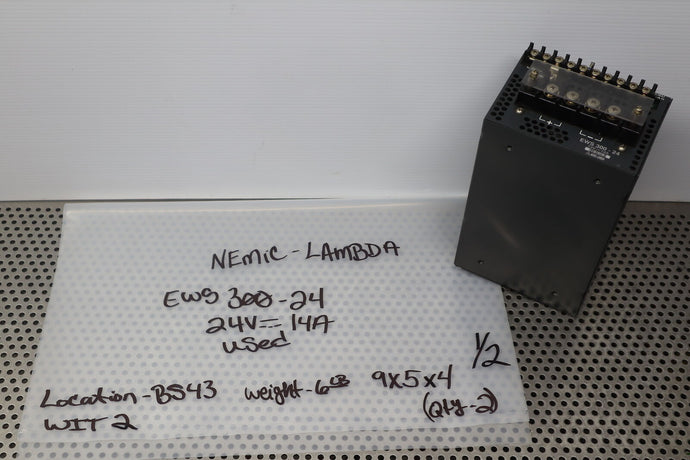 NEMIC-LAMBDA
EWS 300-24
24V⎓14A
used
1/2
Location-BS43 weight-6LB 9x5x4
WIT 2 (Qty-2)
+ -
EWS 300-24